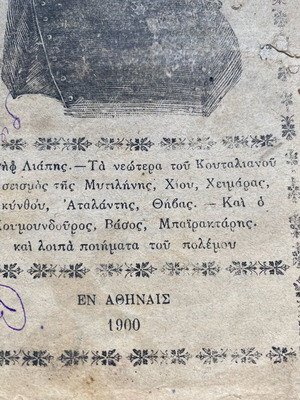 Λιάπης.—Τὰ νεώτερα τοῦ Κουταλιανοῦ
σεισμὸς τῆς Μυτιλήνης, Χίου, Χειμάρας,
κύνθου, Ἀταλάντης, Θήβας. — Καὶ ὁ
ουμουνδοῦρος, Βάσος, Μπαϊρακτάρης.
καὶ λοιπὰ ποιήματα τοῦ πολέμου
ΕΝ ΑΘΗΝΑΙΣ
1900